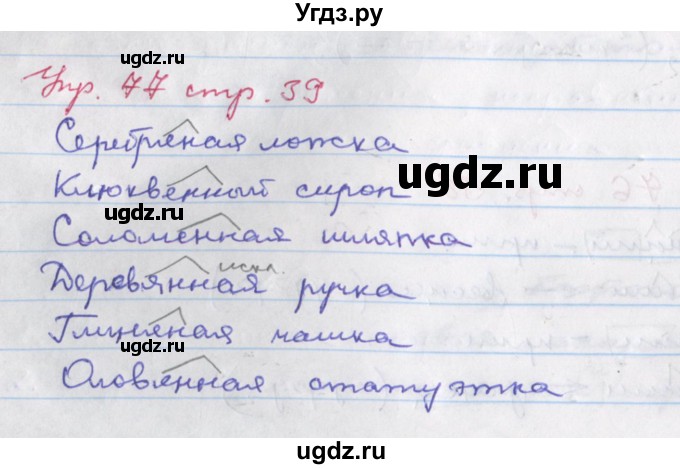 Угдз.ру
Упр. 77 стр. 39
Серебряная ложка
Клюквенный сироп
Соломенная шляпка
искл.
Деревянная ручка
Глиняная чашка
Оловянная статуэтка
ugdz.ru
ugdz.ru
ugdz.ru
ugdz.ru
ugdz.ru
ugdz.ru
ugdz.ru